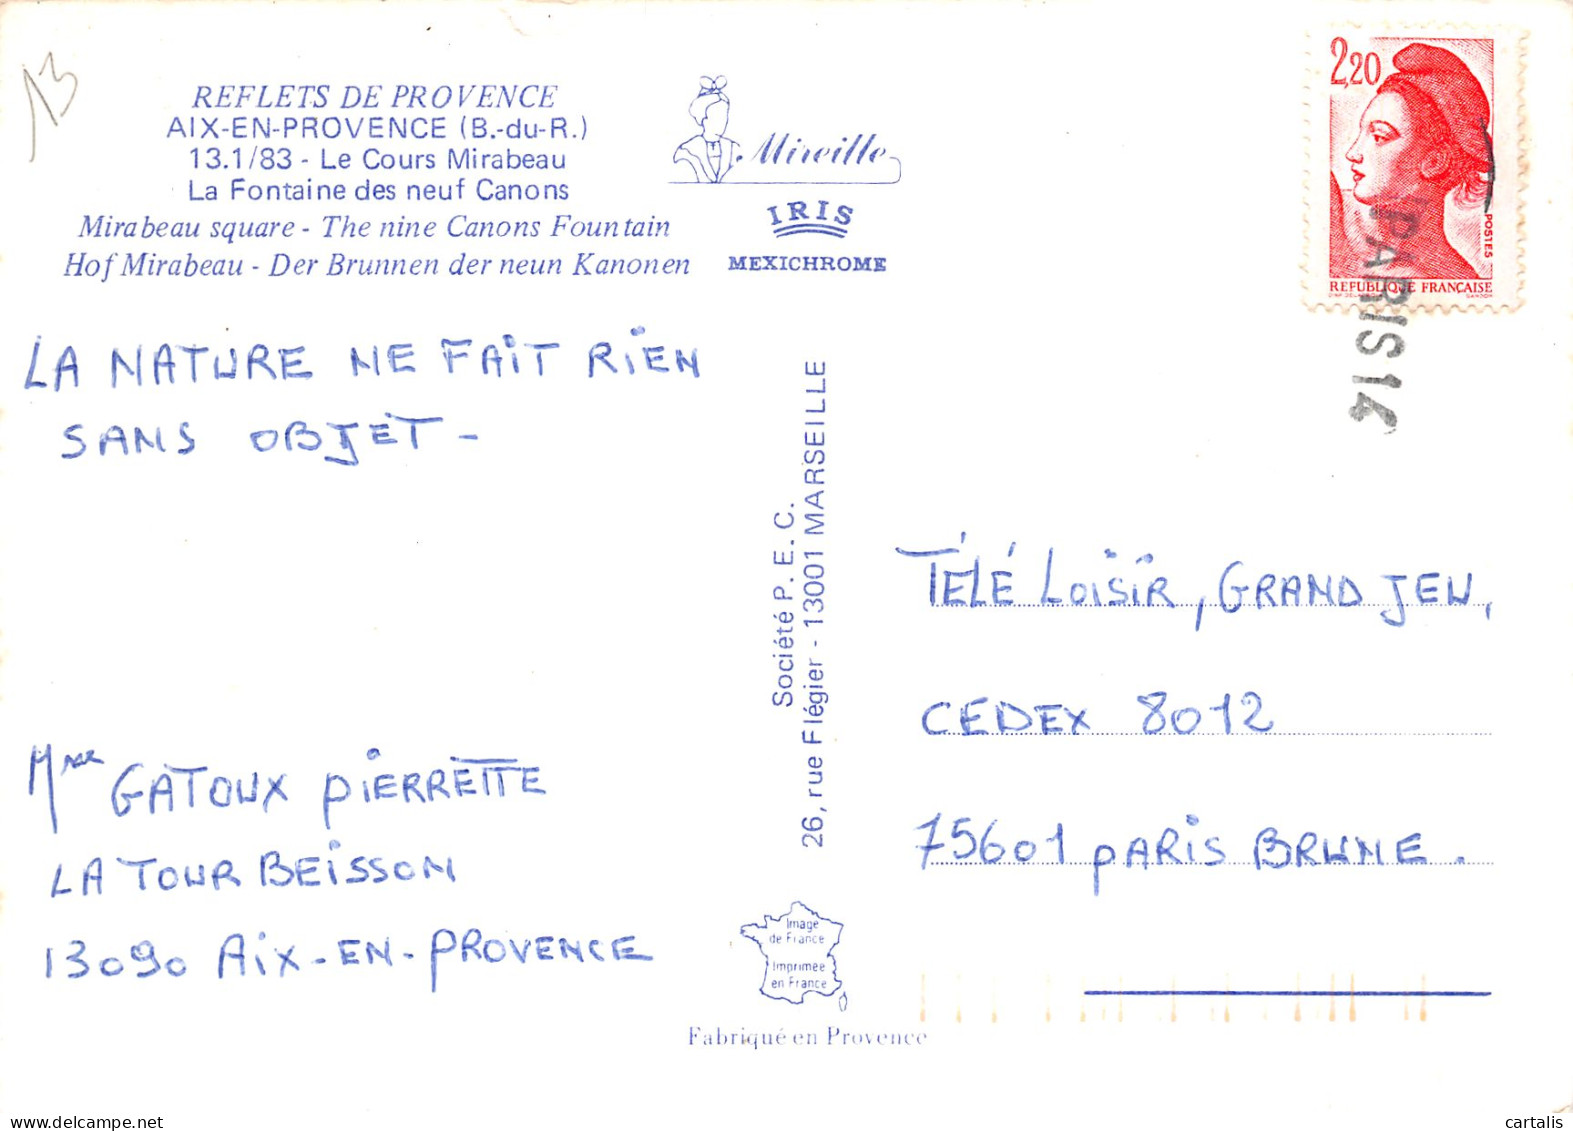 13
REFLETS DE PROVENCE
AIX-EN-PROVENCE (B.-du-R.)
13.1/83 - Le Cours Mirabeau
La Fontaine des neuf Canons
Mirabeau square - The nine Canons Fountain
Hof Mirabeau - Der Brunnen der neun Kanonen
Mireille
IRIS
MEXICHROME
2,20
POSTES
REPUBLIQUE FRANÇAISE
PARIS 14
LA NATURE NE FAIT RIEN
SANS OBJET -
Mme GATOUX PIERRETTE
LA TOUR BEISSON
13090 AIX-EN-PROVENCE
Société P.E.C.
26, rue Flégier - 13001 MARSEILLE
TÉLÉ LOISIR, GRAND JEU,
CEDEX 8012
75601 PARIS BRUNE.
Image
de France
Imprimée
en France
Fabriqué en Provence
cartalis